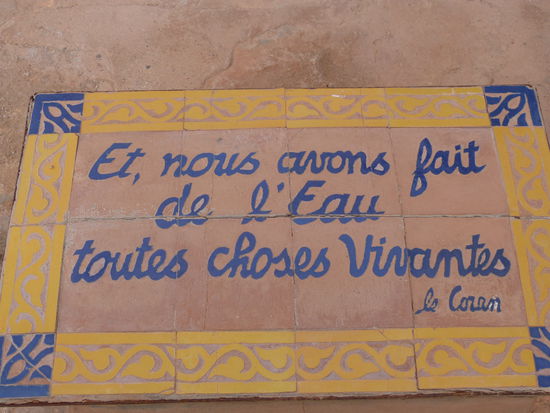 Et, nous avons fait
de l'Eau
toutes choses Vivantes
le Coran